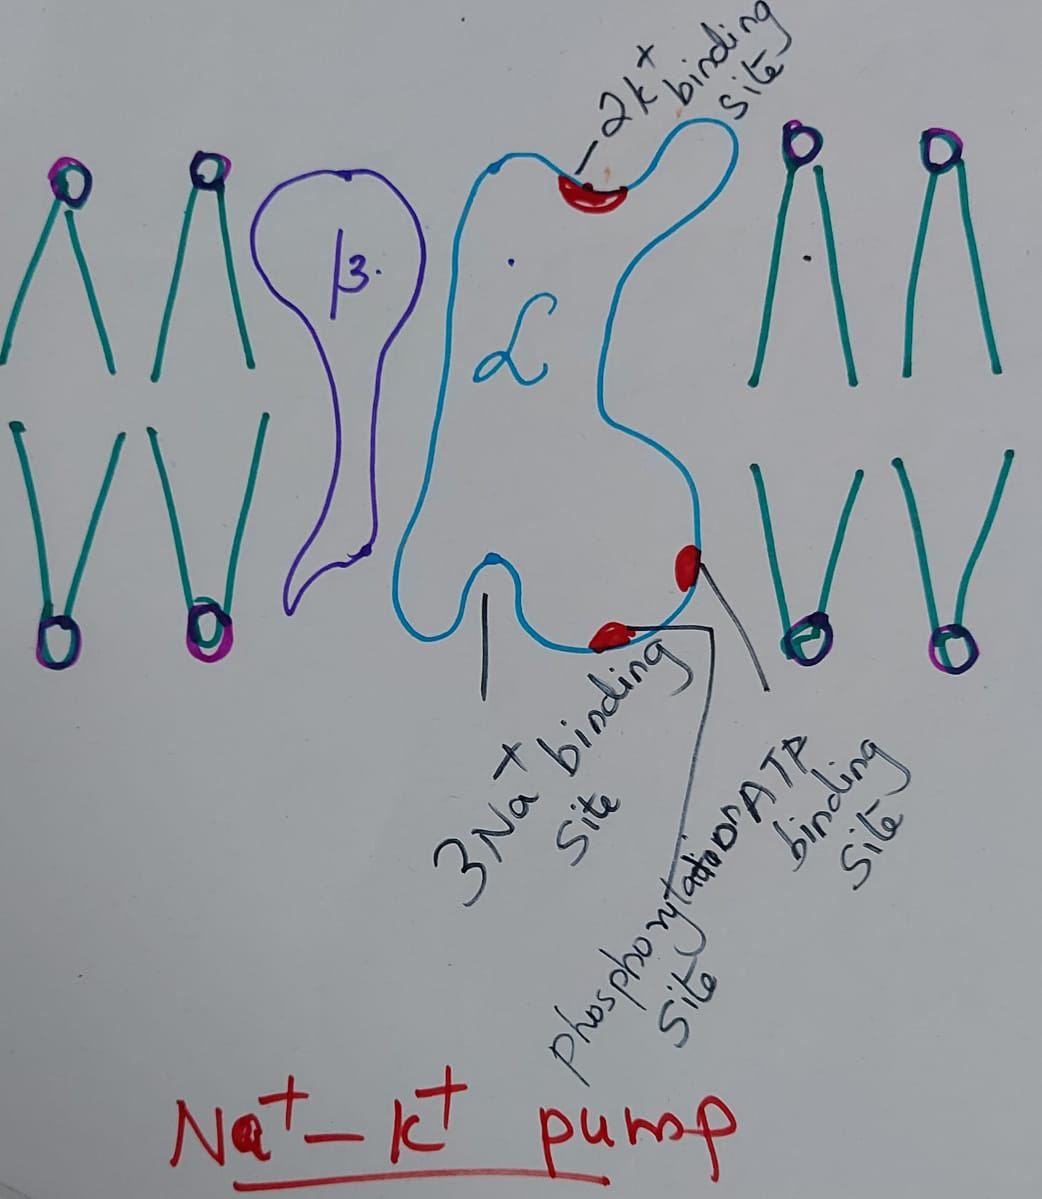 2k+
binding
site
β
α
3Na+ binding
site
phosphorytation
site
ATP
binding
site
Na+ - k+ pump